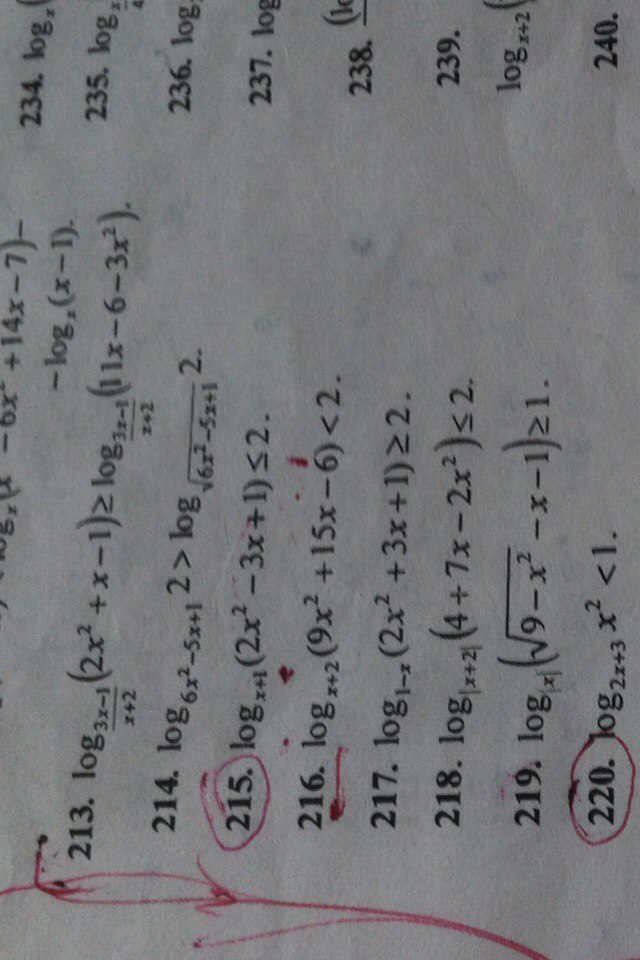 −log_x(x−1).
213. log_{\frac{3x−1}{x+2}}(2x²+x−1)≥log_{\frac{3x−1}{x+2}}(11x−6−3x²).
214. log_{6x²−5x+1} 2>log_{√(6x²−5x+1)} 2.
215. log_{x+1}(2x²−3x+1)≤2.
216. log_{x+2}(9x²+15x−6)<2.
217. log_{1−x}(2x²+3x+1)≥2.
218. log_{|x+2|}(4+7x−2x²)≤2.
219. log_{|x|}(√(9−x²)−x−1)≥1.
220. log_{2x+3} x²<1.
234. log_x(
235. log
236. log
237. log
238.
239.
log_{x+2}(
240.